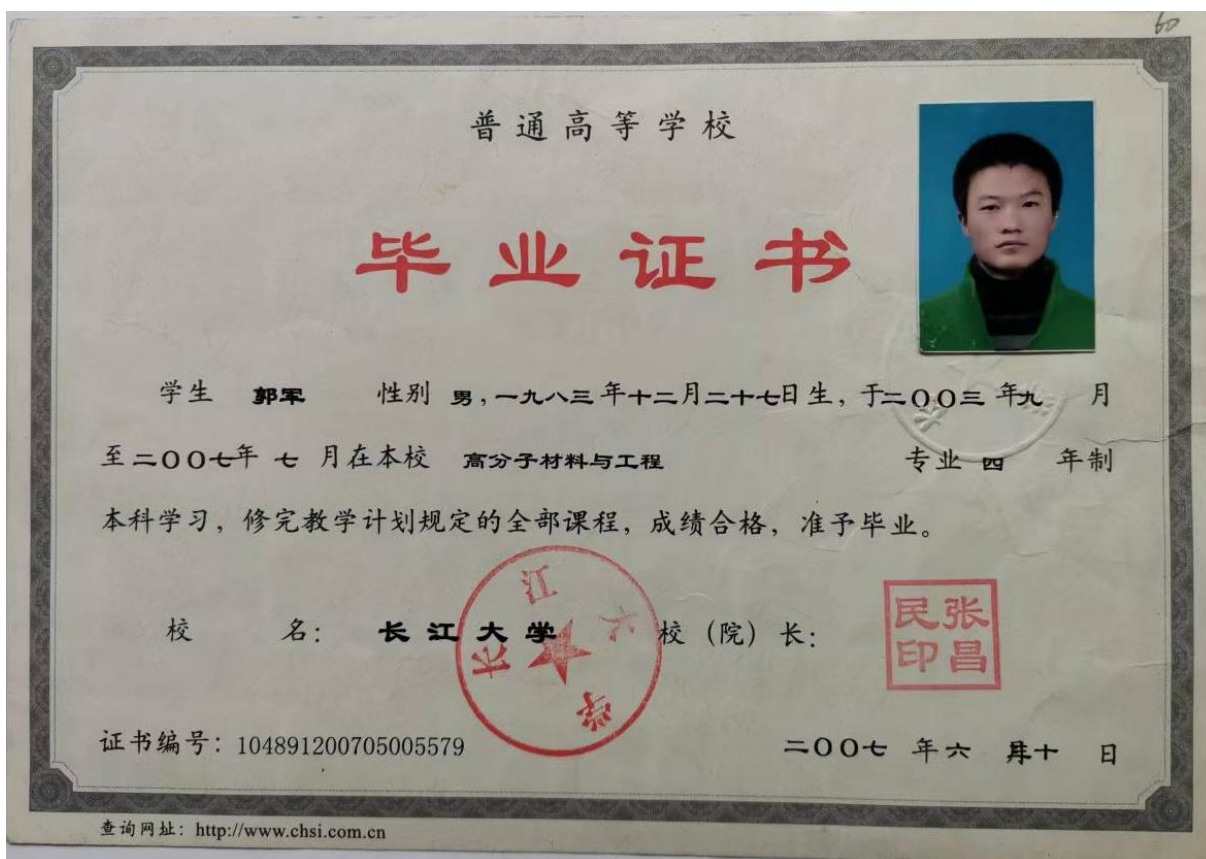 60
普通高等学校
毕业证书
学生 郭军 性别 男，一九八三年十二月二十七日生，于二〇〇三年九 月
至二〇〇七年 七 月在本校 高分子材料与工程 专业 四 年制
本科学习，修完教学计划规定的全部课程，成绩合格，准予毕业。
校 名： 长江大学 校（院）长：
长江大学
张昌民印
证书编号：104891200705005579 二〇〇七 年六 月十 日
查询网址：http://www.chsi.com.cn